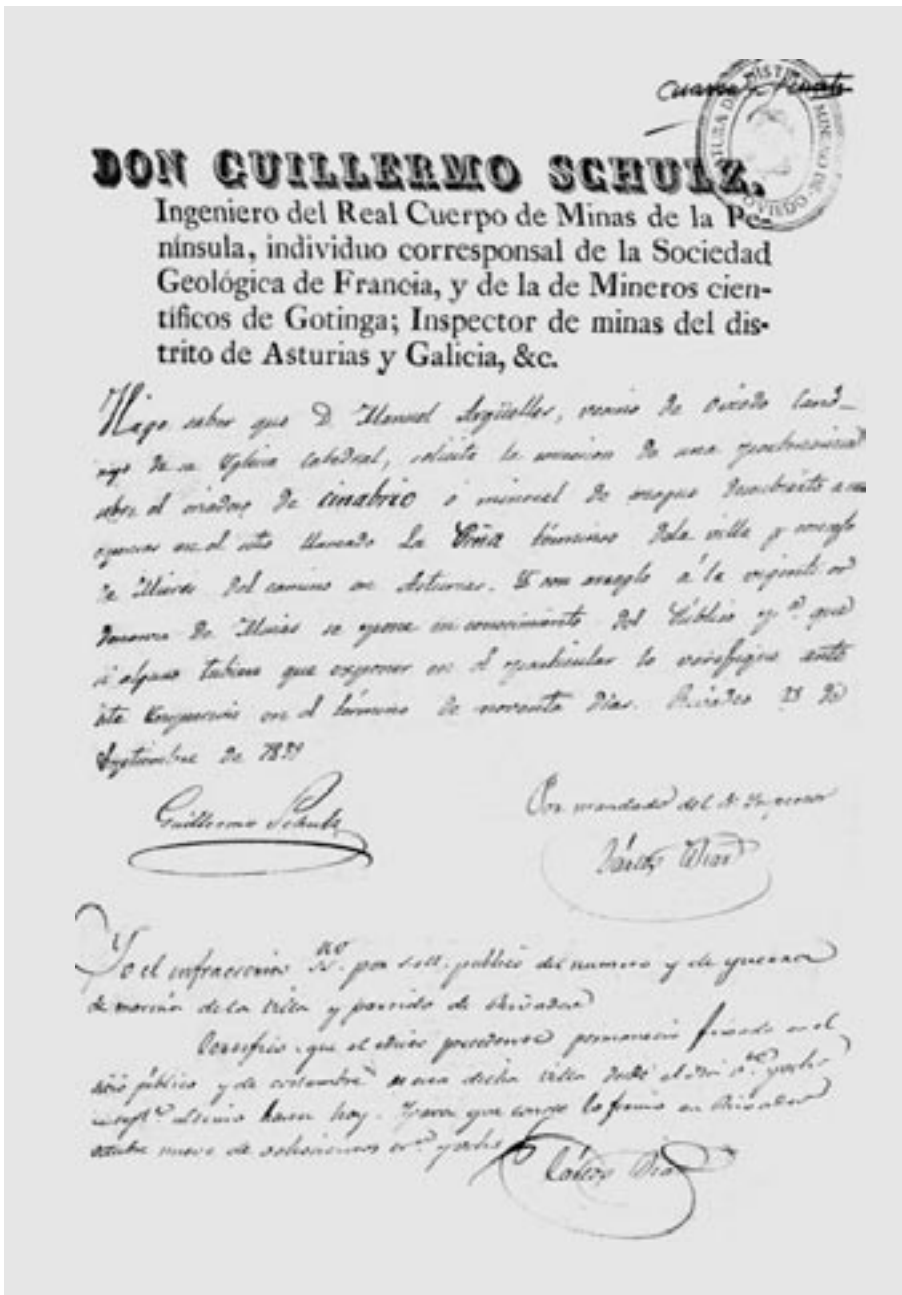 JEFATURA DEL DISTRITO MINERO DE OVIEDO
DON GUILLERMO SCHULZ,
Ingeniero del Real Cuerpo de Minas de la Pe-
nínsula, individuo corresponsal de la Sociedad
Geológica de Francia, y de la de Mineros cien-
tíficos de Gotinga; Inspector de minas del dis-
trito de Asturias y Galicia, &c.
Hago saber que D. Manuel Argüelles, vecino de Oviedo Canó-
nigo de su Yglesia Catedral, solicita la concesion de una pertenencia
sobre el criadero de cinabrio ó mineral de azogue descubierto
en el sitio llamado La términos dela villa y concejo
de Mieres del camino en Asturias. Y con arreglo á la vigente or
denanza de Minas se pone en conocimiento del Público pª. que
si alguno tubiere que exponer en el particular lo verifique ante
esta Ynspeccion en el término de noventa dias. Rivadeo 28 de
Septiembre de
Guillermo Schulz
Por mandado del Sr Ynspector
Cárlos Diaz
Yo el infraescrito por S.M. público del numero y de guerra
de marina de la Villa y partido de Rivadeo
Certifico que el edicto precedente permaneció fixado en el
sitio público y de costumbre dicha villa desde el dia
hasta hoy. Y para que conste lo firmo en Rivadeo
octubre nueve de ochocientos
Cárlos Diaz